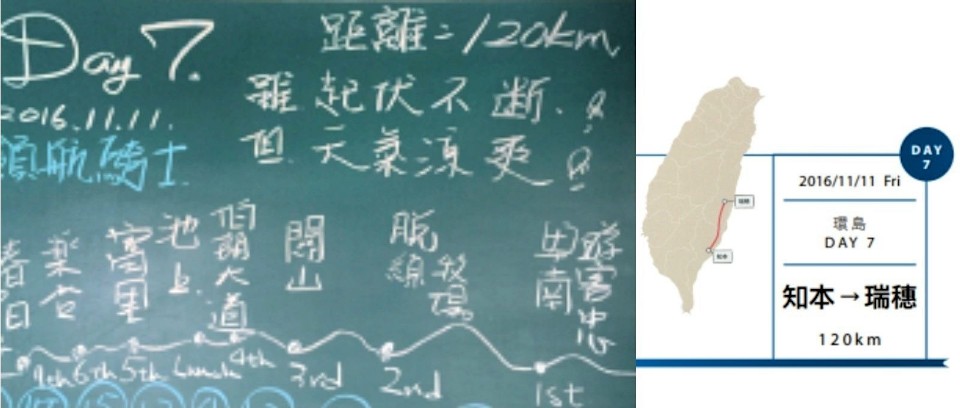 Day 7.
距離=120km
2016.11.11.
領航騎士
雖起伏不斷、
但天氣涼爽
春日
樂合
富里
池上
伯朗大道
關山
脫線牧場
卑南遊客中心
7th 6th 5th Lunch 4th 3rd 2nd 1st
DAY
7
2016/11/11 Fri
環島
DAY 7
知本→瑞穗
120km
瑞穗
知本